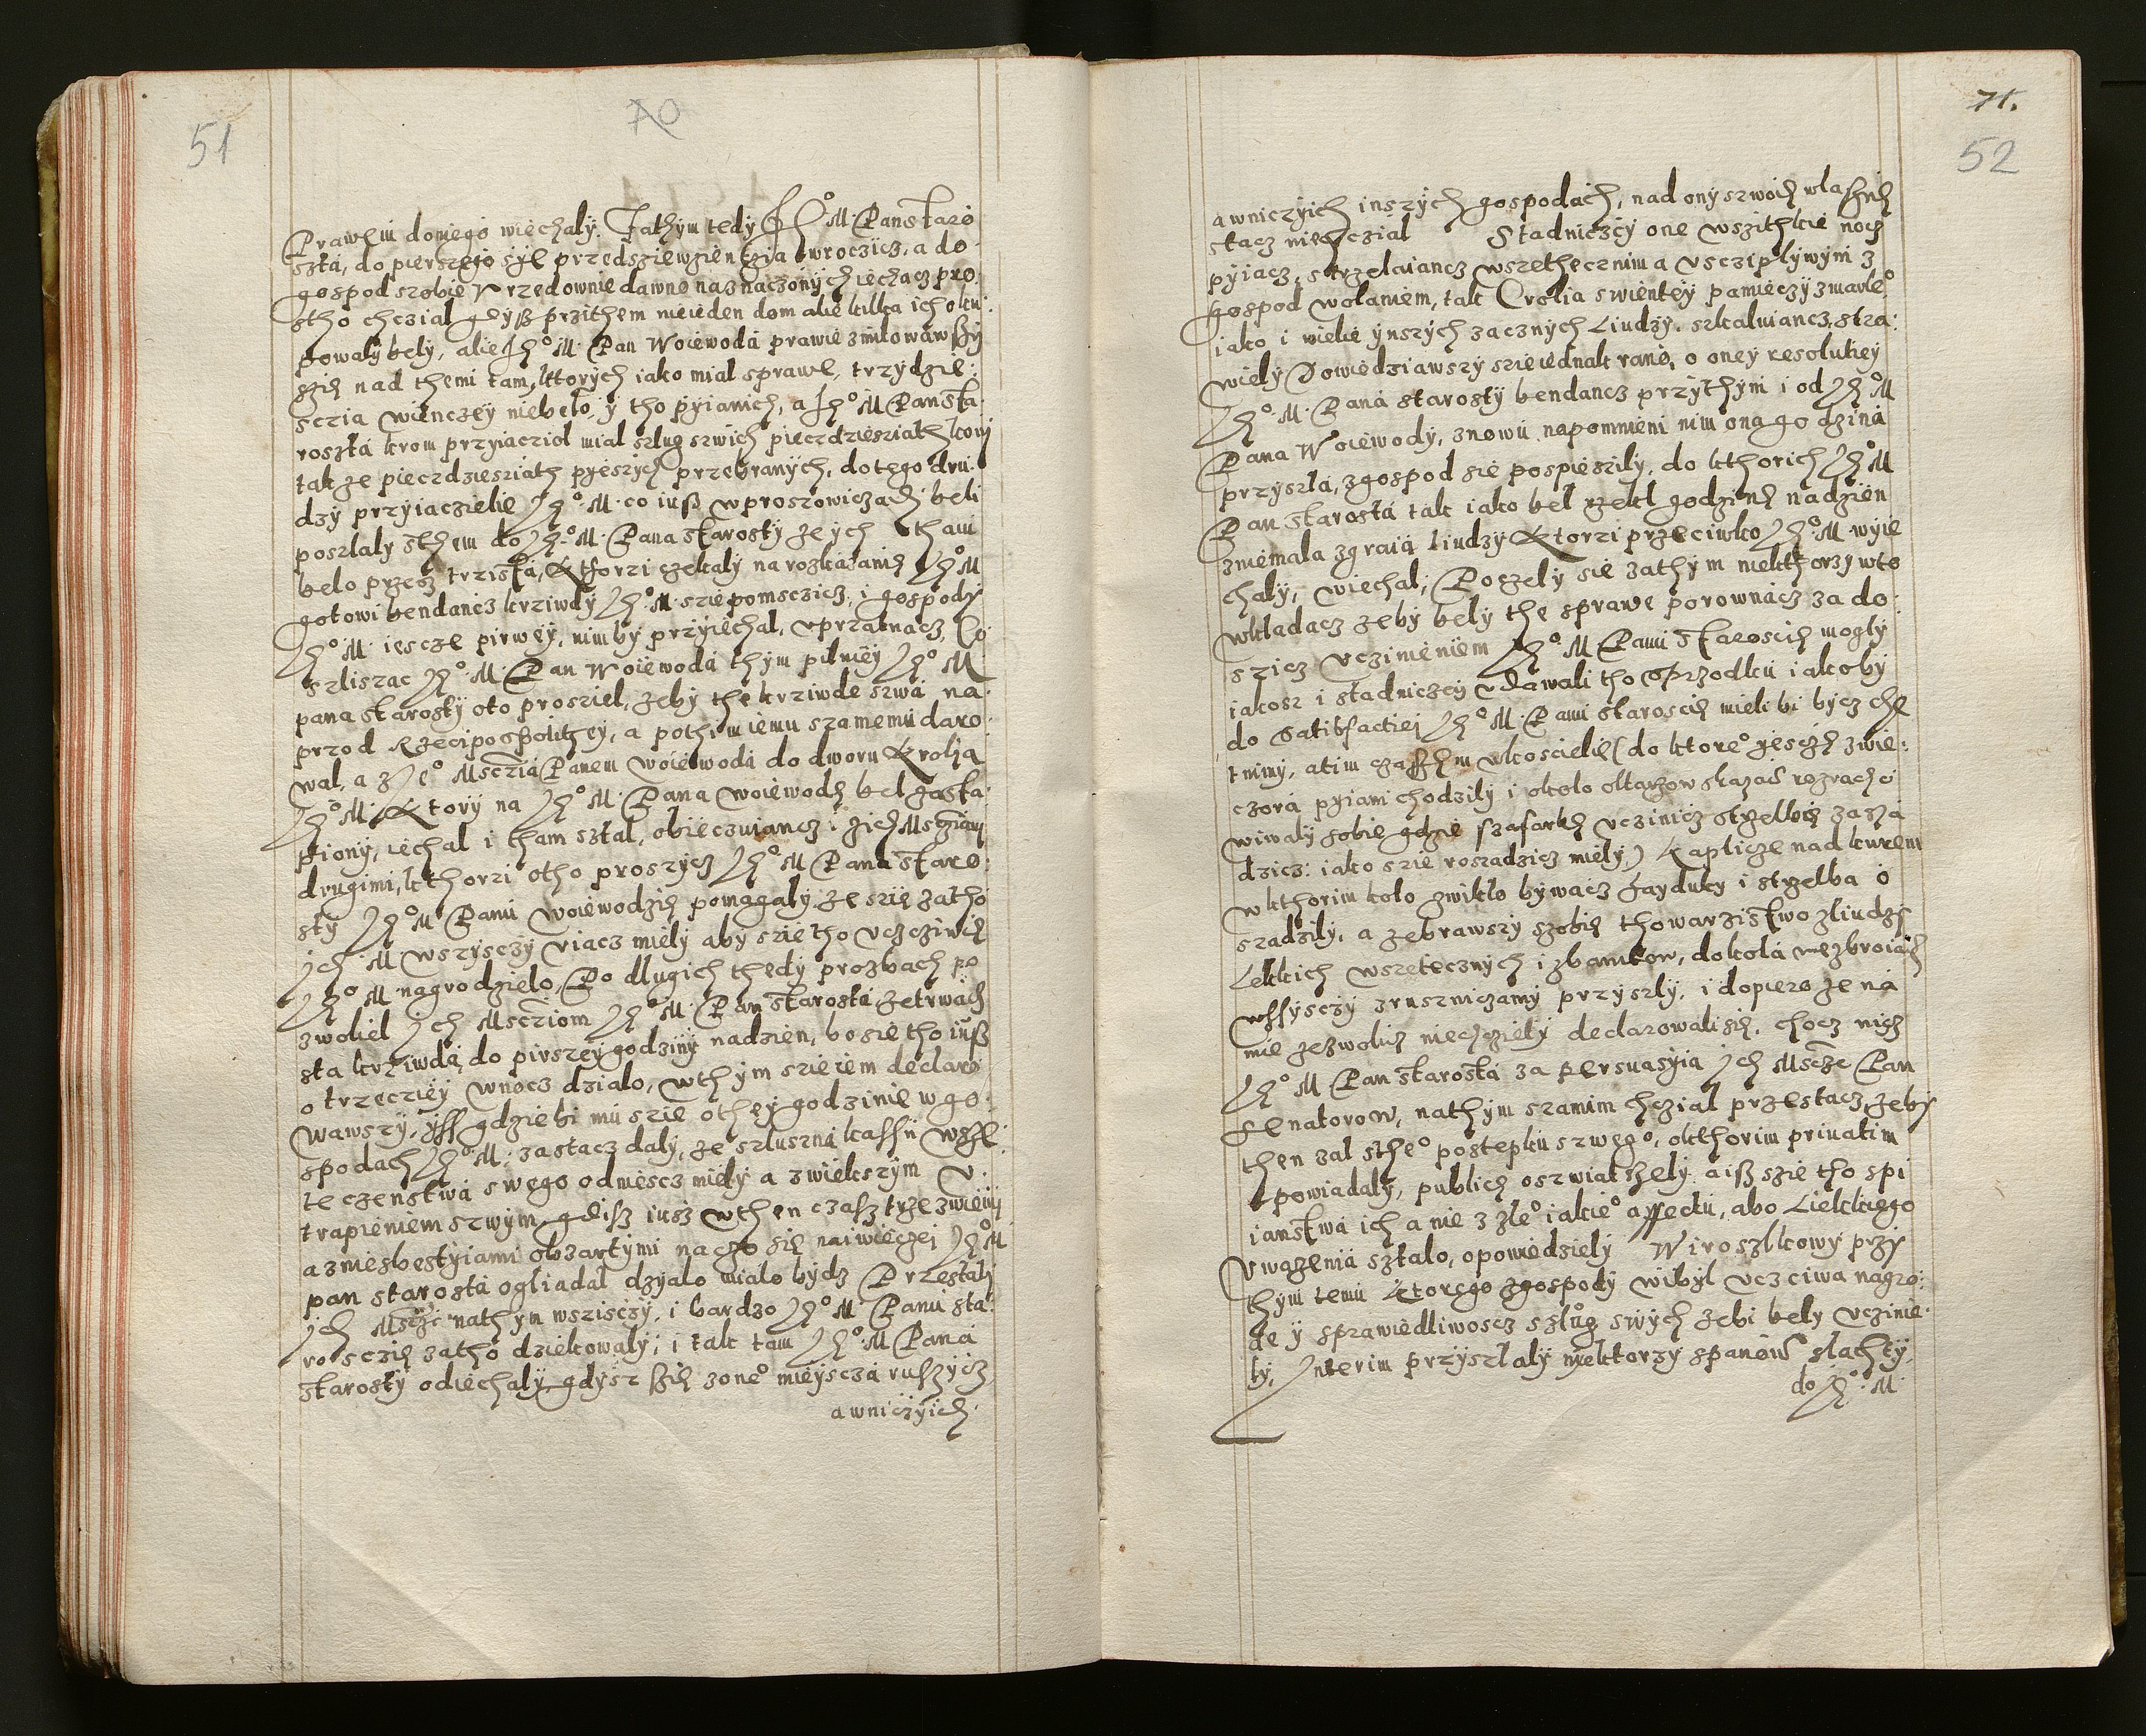 51
70
Prawem doniego wiechaly. Zathym tedy Je° M. Pan staro
szta, do pierszego syę przedsziewzientzia wroczicz, a do
gospod szobie Vrzedownie dawno naznaczonych iechacz pro
stho chczial gdyß przithem nieieden dom alie kilka ich oku
powaly bely, alie Je° M. Pan Woiewoda prawie zmilowawszy
szię nad themi tam, kttorych iako mial sprawe, trzydzie
sczia wienczey niebelo, y tho pyianich, a Je° M Pan sta
roszta krom przyiacziol mial szlug szwich pieczdziesziath koni
takze pieczdziesziath pyeszych przebranych, dotego dru
dzy przyiacziele Je° M. co iuß wproszowiczach beli
poszlaly sthem do Je° M. Pana starosty ze ych tham
belo przesz trzista, Kthorzi czekaly na rozkazanie Je° M
gotowi bendancz krziwdy Je° M. szie pomsczicz, i gospody
Je° M. iescze pirwey, nimby przyiechal, vprzatnacz, Co
szliszac Je° M. Pan Woiewoda thym pilniey Je° M
pana starosty oto prosziel, zeby the krziwde szwa na
przod Rzeciipospolithey, a pothim iemu szamemu daro
wal, a z Je° Msczia Panem woiewoda do dworu Krolia
Je° M. Ktory na Je° M. Pana woiewode bel zasta
piony, iechal i tham sztal, obieczuiancz i zich Msciami
drugimi, kthorzi otho proszycz Je° M Pana staro
sty Je° M Panu woiewodzie pomagaly ze szie zatho
Jch M wszysczy viacz miely aby szie tho vczciwie
Je° M nagrodzielo, Po dlugich thedy prozbach po
zwoliel Jch Mscziom Je° M Pan starosta zetrwacz
sta krziwda do pirszey godziny nadzien, bo sie tho iuß
o trzecziey wnocz dzialo, wthym szie iem declaro
wawszy, yß gdziebi mu szie othey godzinie wgo
spodach Je° M. zastacz daly, ze szluszna kaßn wsze
teczenstwa swego odniescz miely a zwiekszym v
trapieniem szwym gdisz iusz wthen czasz trzezwiemi
a zniesbestyiami obzartymi naczo się naiwieczei Je° M
pan starosta ogliadal dzyalo mialo bydz Przestaly
Jch Mscze nathym wszisczy, i bardzo Je° M Panu sta
rosczie zatho dziekowaly, i tak tam Je° M Pana
starosty odiechaly gdysz szię zone° mieyscza ruszycz
awniczyich
71.
52
awniczyich inszych gospodach, nad ony szwoie wlasznie
stacz niechczial Stadniczcy one wszithkie nocz
pyiacz, strzelaiancz wszethecznim a vscziplywym z
gospod wolaniem, tak Crolia swientey pamieczy zmarle°
iako i wiele ynszych zacznych Liudzy. szkaluiancz, stra
wiely Dowiedziawszy szie iednak rano, o oney resolutiey
Je° M. Pana starosty bendancz przythym i od Je° M
Pana Woiewody, znowu napomnieni nim ona godzina
przyszla, zgospod sie pospieszily, do kthorich Je° M
Pan starosta tak iako bel rzekl godzine nadzien
zniemala zgraia liudzy Ktorzi przeciwko Je° M. wyie
chaly, wiechal; Poczely sie zathym niektthorzy wto
wkladacz zeby bely the sprawe porownacz za do
szicz vczinieniem Je° M Panu starosczie mogly
iakosz i stadniczcy vdawali tho sprzodku iakoby
do satisfactiei Je° M. Panu starosczie mieli bi bycz che
tnimy, atim czaszem wkoscielie (do ktore° yescze zwie
czora pyiani chodzily i okolo oltarzow skazac rozrachci
wiwaly sobie gdzie szafarke vczinicz strzelbie zasza
dzicz: iako szie roszadzicz miely) kaplicze nad kurem
wkthorim kolo zwiklo bywacz hayduky i strzelba o
szadzily, a zebrawszy szobie thowarzistwo zliudzy
Lekkich wszetecznych i zbanitow, dokola wezbroiach
wszysczy zrusznicamy przyszly, i dopiero ze na
nie zezwolicz niechcziely declarowali sie, chocz nich
Je° M Pan starosta za persuasyia Jch Mscze Pan
senatorow, nathym szamim chczial przestacz, zeby
then zal sthe° postepku szwego, okthorim priuatim
powiadaly, publice oszwiatszely. aiß szie tho spi
ianstwa ich a nie z zle° iakie° affectu, abo Liekkiego
Vwazenia sztalo, opowiedziely Wiroszkowy przy
thym temu ktorego zgospody wibyl vczciwa nagro
de y sprawiedliwoscz szlug swych zebi bely vczinie
ly, Interim przyszlaly niektorzy spanow slachty,
do Je° M.